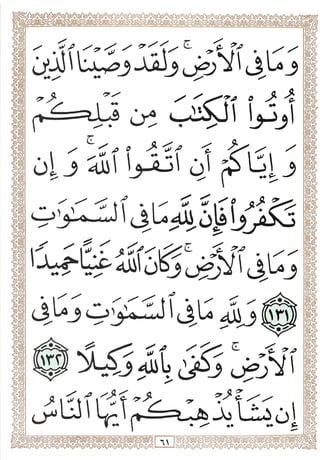 وَمَا فِى ٱلْأَرْضِ ۗ وَلَقَدْ وَصَّيْنَا ٱلَّذِينَ
أُوتُوا۟ ٱلْكِتَٰبَ مِن قَبْلِكُمْ
وَإِيَّاكُمْ أَنِ ٱتَّقُوا۟ ٱللَّهَ ۚ وَإِن
تَكْفُرُوا۟ فَإِنَّ لِلَّهِ مَا فِى ٱلسَّمَٰوَٰتِ
وَمَا فِى ٱلْأَرْضِ ۚ وَكَانَ ٱللَّهُ غَنِيًّا حَمِيدًا
١٣١ وَلِلَّهِ مَا فِى ٱلسَّمَٰوَٰتِ وَمَا فِى
ٱلْأَرْضِ ۚ وَكَفَىٰ بِٱللَّهِ وَكِيلًا ١٣٢
إِن يَشَأْ يُذْهِبْكُمْ أَيُّهَا ٱلنَّاسُ
٦١